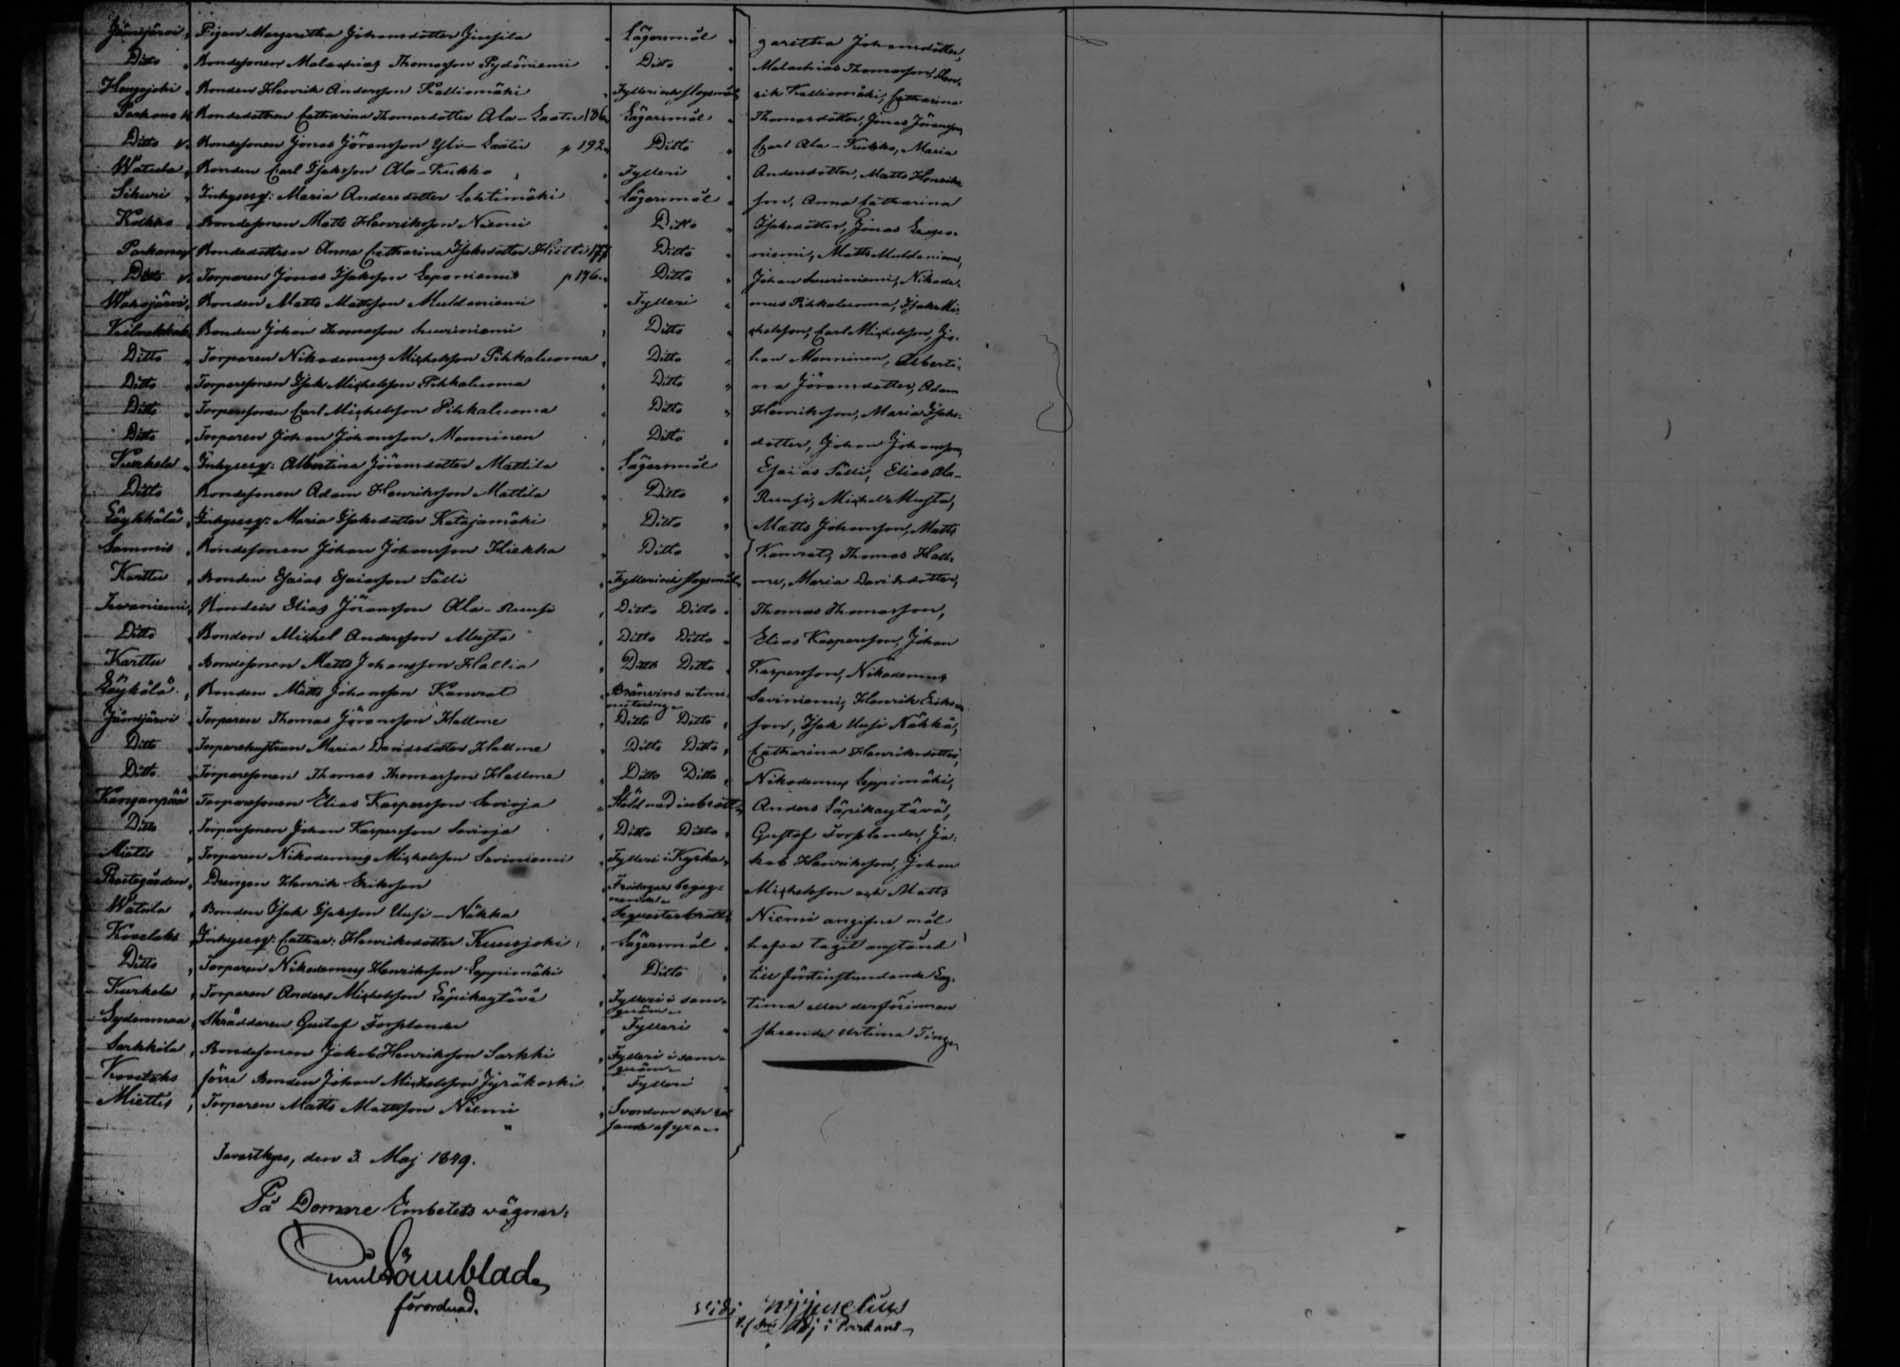 Jämijärvi Pigan Margaretha Johansdotter Lägersmål
Ditto Bondesonen Malachias Thomasson Pydöniemi Ditto
Bonden Henrik Andersson Kalliomäki Fylleri och slagsmål
Parkano Bondedottren Catharina Thomasdotter Ala-Lägersmål
Ditto Bondesonen Jonas Jöransson Yli- p 192 Ditto
Watula Bonden Carl Isaksson Ala-Kukko Fylleri
Sikuri Inhyseq: Maria Andersdotter Lehtimäki Lägersmål
Bondesonen Matts Henriksson Niemi Ditto
Parkano Bondedottren Anna Catharina Isaksdotter 177 Ditto
Ditto Torparen Jonas Isaksson Leponiemi p 196 Ditto
Bonden Matts Mattsson Muldaniemi Fylleri
Bonden Johan Thomasson Suuriniemi Ditto
Ditto Torparen Nikodemus Michelsson Pihkaluoma Ditto
Ditto Torparesonen Isak Michelsson Pihkaluoma Ditto
Ditto Torparesonen Carl Michelsson Pihkaluoma Ditto
Ditto Torparen Johan Johansson Manninen Ditto
Kurkela Inhyseq: Albertina Jöransdotter Mattila Lägersmål
Ditto Bondesonen Adam Henriksson Mattila Ditto
Inhyseq: Maria Isaksdotter Katajamäki Ditto
Sammi Bondesonen Johan Johansson Hiekka Ditto
Karttu Bonden Esaias Esaiasson Sälli Fylleri och slagsmål
Bonden Elias Jöransson Ala-Ruusi Ditto Ditto
Ditto Bonden Michel Andersson Musta Ditto Ditto
Karttu Bondesonen Matts Johansson Hallia Ditto Ditto
Bonden Matts Johansson Kamrat Bränvins utmi-
nutering
Jämijärvi Torparen Thomas Jöransson Hallme Ditto Ditto
Ditto Torparehustrun Maria Davidsdotter Hallme Ditto Ditto
Ditto Torparesonen Thomas Thomasson Hallme Ditto Ditto
Kanganpää Torparesonen Elias Kaspersson Savioja Stöld med inbrott
Ditto Torparesonen Johan Kaspersson Savioja Ditto Ditto
Miettis Torparen Nikodemus Michelsson Saviniemi Fylleri i Kyrka
Prestegården Drengen Henrik Eriksson
Watula Bonden Isak Isaksson Uusi-Näkkä
Kovelaks Inhyseq: Cathar: Henriksdotter Kuusijoki Lägersmål
Ditto Torparen Nikodemus Henriksson Leppimäki Ditto
Kurkela Torparen Anders Michelsson Läpikäytävä Fylleri i sam-
qväm
Sydenmaa Skräddaren Gustaf Forslander Fylleri
Sarkkila Bondesonen Jakob Henriksson Sarkki Fylleri i sam-
qväm
förre Bonden Johan Michelsson Jyräkoski Fylleri
Miettis Torparen Matts Mattsson Niemi Svordom och
garetha Johansdotter,
Malachias Thomasson, Hen-
rik Kalliomäki, Catharina
Thomasdotter, Jonas Jöransson,
Carl Ala-Kukko, Maria
Andersdotter, Matts Henriks-
son, Anna Catharina
Isaksdotter, Jonas Lepo-
niemi, Matts Muldaniemi,
Johan Suuriniemi, Nikode-
mus Pihkaluoma, Isak Mi-
chelsson, Carl Michelsson, Jo-
han Manninen, Alberti-
na Jöransdotter, Adam
Henriksson, Maria Isaks-
dotter, Johan Johansson,
Esaias Sälli, Elias Ala-
Ruusi, Michel Musta,
Matts Johansson, Matts
Kamrat, Thomas Hall-
me, Maria Davidsdotter,
Thomas Thomasson,
Elias Kaspersson, Johan
Kaspersson, Nikodemus
Saviniemi, Henrik Eriks-
son, Isak Uusi Näkkä,
Catharina Henriksdotter,
Nikodemus Leppimäki,
Anders Läpikäytävä,
Gustaf Forslander, Ja-
kob Henriksson, Johan
Michelsson och Matts
Niemi angifne mål
hafva tagit anstånd
till förstinstundande Lag-
tima eller derförinnan
skeende Urtima Ting.
Tavastkyro, den 3 Maj 1849.
På Domare Embetets vägnar:
förordnad.